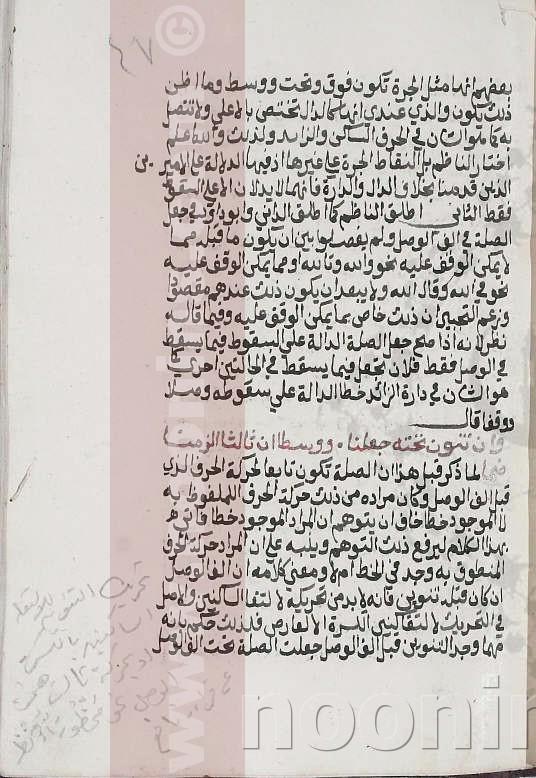 ٤٧
بعضهم انها مثل الجرة تكون فوق وتحت ووسط وما اظن
ذلك يكون والذي عندي انها كالدال تختص بالاعلى ولا تتصل
به كما هو الشان في الحرف الساكن والزايد ولذلك والله اعلم
اختار الناظم بالنقاط الجرة على غيرها اذ فيها الدلالة على الامرين
الذين قدمنا بخلاف الدال والدارة فانهما لا يدلان الا على السقوط
فقط الثاني اطلق الناظم كما اطلق الداني وابو داود في جعل
الصلة في الف الوصل ولم يفصلوا بين ان يكون ما قبله مما
لا يمكن الوقف عليه نحو والله وتالله او مما يمكن الوقف عليه
نحو في الله وقال الله ولا يبعد ان يكون ذلك عندهم مقصودا
وزعم التجيبي ان ذلك خاص بما يمكن الوقف عليه وفيما قاله
نظر لانه اذا صح جعل الصلة الدالة على السقوط فيما يسقط
في الوصل فقط فلان تجعل فيما يسقط في الحالتين احرى كما
هو الشان في دارة الزائد خطا الدالة على سقوطه وصلا
ووقفا قال
وان تنون تحته جعلتا ووسطا ان ثالثا الزمتا
ضما لما ذكر قبل هذا ان الصلة تكون تابعا لحركة الحرف الذي
قبل الف الوصل وكان مراده من ذلك حركة الحرف الملفوظ به
لا الموجود خطا خاف ان يتوهم ان المراد الموجود خطا فاتى
بهذا الكلام ليرفع ذلك التوهم وينبه على ان المراد حركة الحرف
المنطوق به وجد في الخط ام لا ومعنى كلامه ان الف الوصل
ان كان قبله تنوين فانه لا بد من تحريكه لالتقاء الساكنين والاصل
في التحريك لالتقاء الساكنين الكسرة الا لعارض فلذلك حكم بانه
مهما وجد التنوين قبل الف الوصل جعلت الصلة تحت الف الوصل
تحريك التنوين
noonin